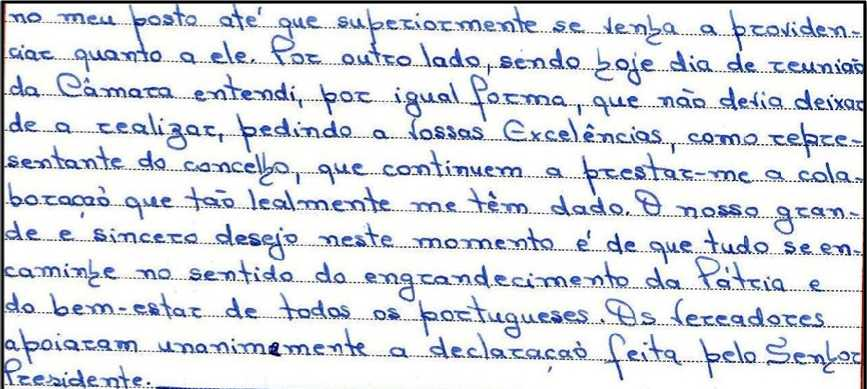 no meu posto até que superiormente se venha a providen-
ciar quanto a ele. Por outro lado, sendo hoje dia de reunião
da Câmara entendi, por igual forma, que não devia deixar
de a realizar, pedindo a Vossas Excelências, como repre-
sentante do concelho, que continuem a prestar-me a cola-
boração que tão lealmente me têm dado. O nosso gran-
de e sincero desejo neste momento é de que tudo se en-
caminhe no sentido do engrandecimento da Pátria e
do bem-estar de todos os portugueses. Os Vereadores
apoiaram unanimemente a declaração feita pelo Senhor
Presidente.